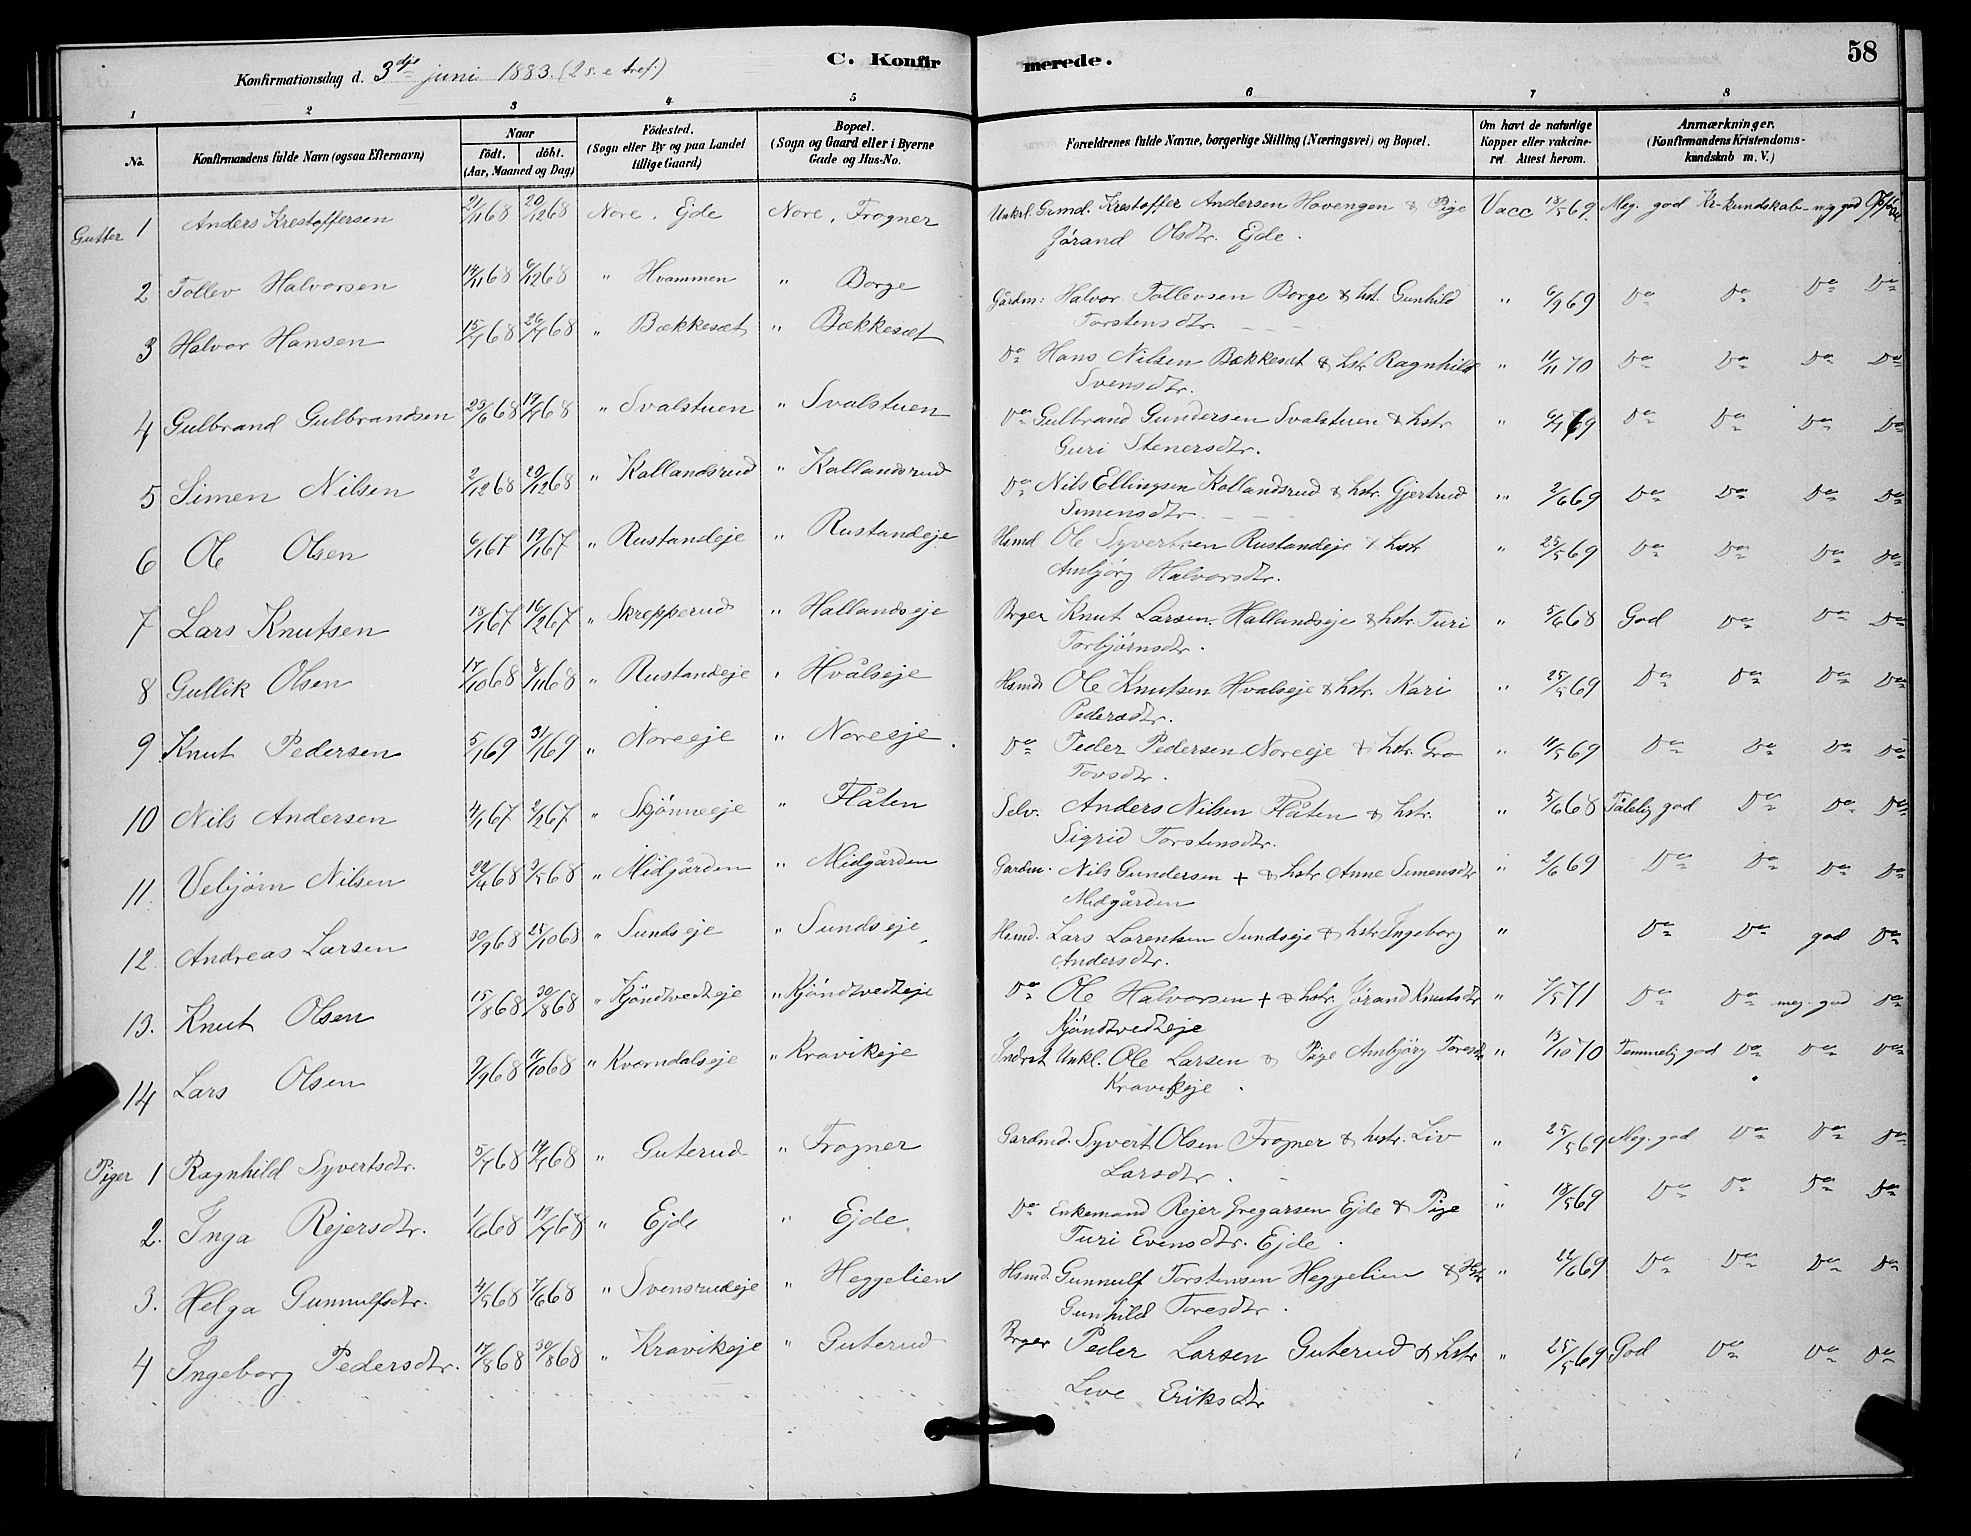 Konfirmationsdag d. 3die juni 1883. (2 s. e. tref.) C. Konfirmerede. 58
1 2 3 4 5 6 7 8
No. Konfirmandens fulde Navn (ogsaa Efternavn) Naar födt. döbt. (Aar, Maaned og Dag) Födested. (Sogn eller By og paa Landet tillige Gaard) Bopæl. (Sogn og Gaard eller i Byerne Gade og Hus-No. Forældrenes fulde Navne, borgerlige Stilling (Næringsvei) og Bopæl. Om havt de naturlige Kopper eller vakcineret. Attest herom. Anmærkninger. (Konfirmandens Kristendomskundskab m. V.)
Gutter 1 Anders Krestoffersen 21/11 68 20/12 68 Nore, Ejde Nore, Frogner Unkrl. Grmd. Krestoffer Andersen Hovengen & Pige Vacc 13/5 69 Meg. god Kr-kundskab meg god Opførsel
Jörand Olsdtr. Ejde.
2 Tollev Halvorsen 14/11 68 6/12 68 " Hvammen " Borge Gårdm: Halvor Tollevsen Borge & hst. Gunhild " 6/9 69 Do Do Do Do
Torstensdtr.
3 Halvor Hansen 15/7 68 26/7 68 " Bækkesæt " Bækkesæt Do Hans Nilsen Bækkesæt & hstr Ragnhild " 11/11 70 Do Do Do Do
Svensdtr.
4 Gulbrand Gulbrandsen 23/6 68 19/7 68 " Svalstuen " Svalstuen Do Gulbrand Gundersen Svalstuen & hstr " 69 Do Do Do Do
Guri Stenersdtr.
5 Simen Nilsen 2/12 68 20/12 68 " Kallandsrud " Kallandsrud Do Nils Ellingsen Kallandsrud & hstr. Gjertrud " 2/6 69 Do Do Do Do
Simensdtr.
6 Ole Olsen 6/1 67 19/1 67 " Rustandeje " Rustandeje Hsmd Ole Syvertsen Rustandeje & hstr " 25/5 69 Do Do Do Do
Ambjörg Halvorsdtr.
7 Lars Knutsen 18/1 67 16/2 67 " Skrepperud " Hallandseje Brger Knut Larsen Hallandseje & hstr. Turi " 5/6 68 God Do Do Do
Torbjørnsdtr.
8 Gullik Olsen 17/10 68 8/11 68 " Rustandeje " Hvålseje Hsmd Ole Knutsen Hvalseje & hstr. Kari " 25/5 69 Do Do Do Do
Pedersdtr.
9 Knut Pedersen 5/1 69 31/1 69 " Noreeje " Noreeje. Do Peder Pedersen Noreeje & hstr. Gro " 4/5 69 Do Do Do Do
Tovsdtr.
10 Nils Andersen 4/1 67 2/2 67 " Skjönneeje " Flåten Selv. Anders Nilsen Flåten & hstr. " 5/6 68 Tålelig god Do Do Do
Sigrid Torstensdtr.
11. Vebjørn Nilsen 22/4 68 3/5 68 " Midgården " Midgården Gardm. Nils Gundersen + & hstr Anne Simensdtr " 2/6 69 Do Do Do Do
Midgården
12. Andreas Larsen 30/9 68 25/10 68 " Sundseje " Sundseje Hsmd. Lars Larentsen Sundseje & hstr Ingeborg " Do Do god Do
Andersdtr.
13. Knut Olsen 15/8 68 30/8 68 " Kjöndtvedteje " Kjöndtvedteje Do Ole Halvorsen + & hstr. Jörand Knutsdtr " 7/5 71 Do Do meg. god Do
Kjöndtvedteje
14 Lars Olsen 7/9 68 11/10 68 " Kverndalseje " Kravikeje Indrst Unkl. Ole Larsen & Pige Ambjörg Toresdtr " 13/10 70 Temmelig god Do Do Do
Kravikeje.
Piger 1 Ragnhild Syvertsdtr. 5/7 68 19/7 68 " Guterud " Frogner Gardmd. Syvert Olsen Frogner & hstr. Liv " 25/5 69 Meg. god Do Do Do
Larsdtr.
2. Inga Rejersdtr. 1/6 68 19/7 68 " Ejde " Ejde. Do Enkemand Rejer Gregarsen Ejde & Pige " 18/5 69 Do Do Do Do
Turi Evensdtr. Ejde.
3. Helga Gunnulfsdtr. 4/5 68 7/6 68 " Svensrudeje " Heggelien Hsmd. Gunnulf Torstensen Heggelien & Hstr " 22/6 69 Do Do Do Do
Gunhild Toresdtr.
4 Ingeborg Pedersdtr. 17/8 68 30/8 68 " Kravikeje " Guterud Brger Peder Larsen Guterud & hstr " 25/5 69 God Do Do Do
Live Eriksdtr